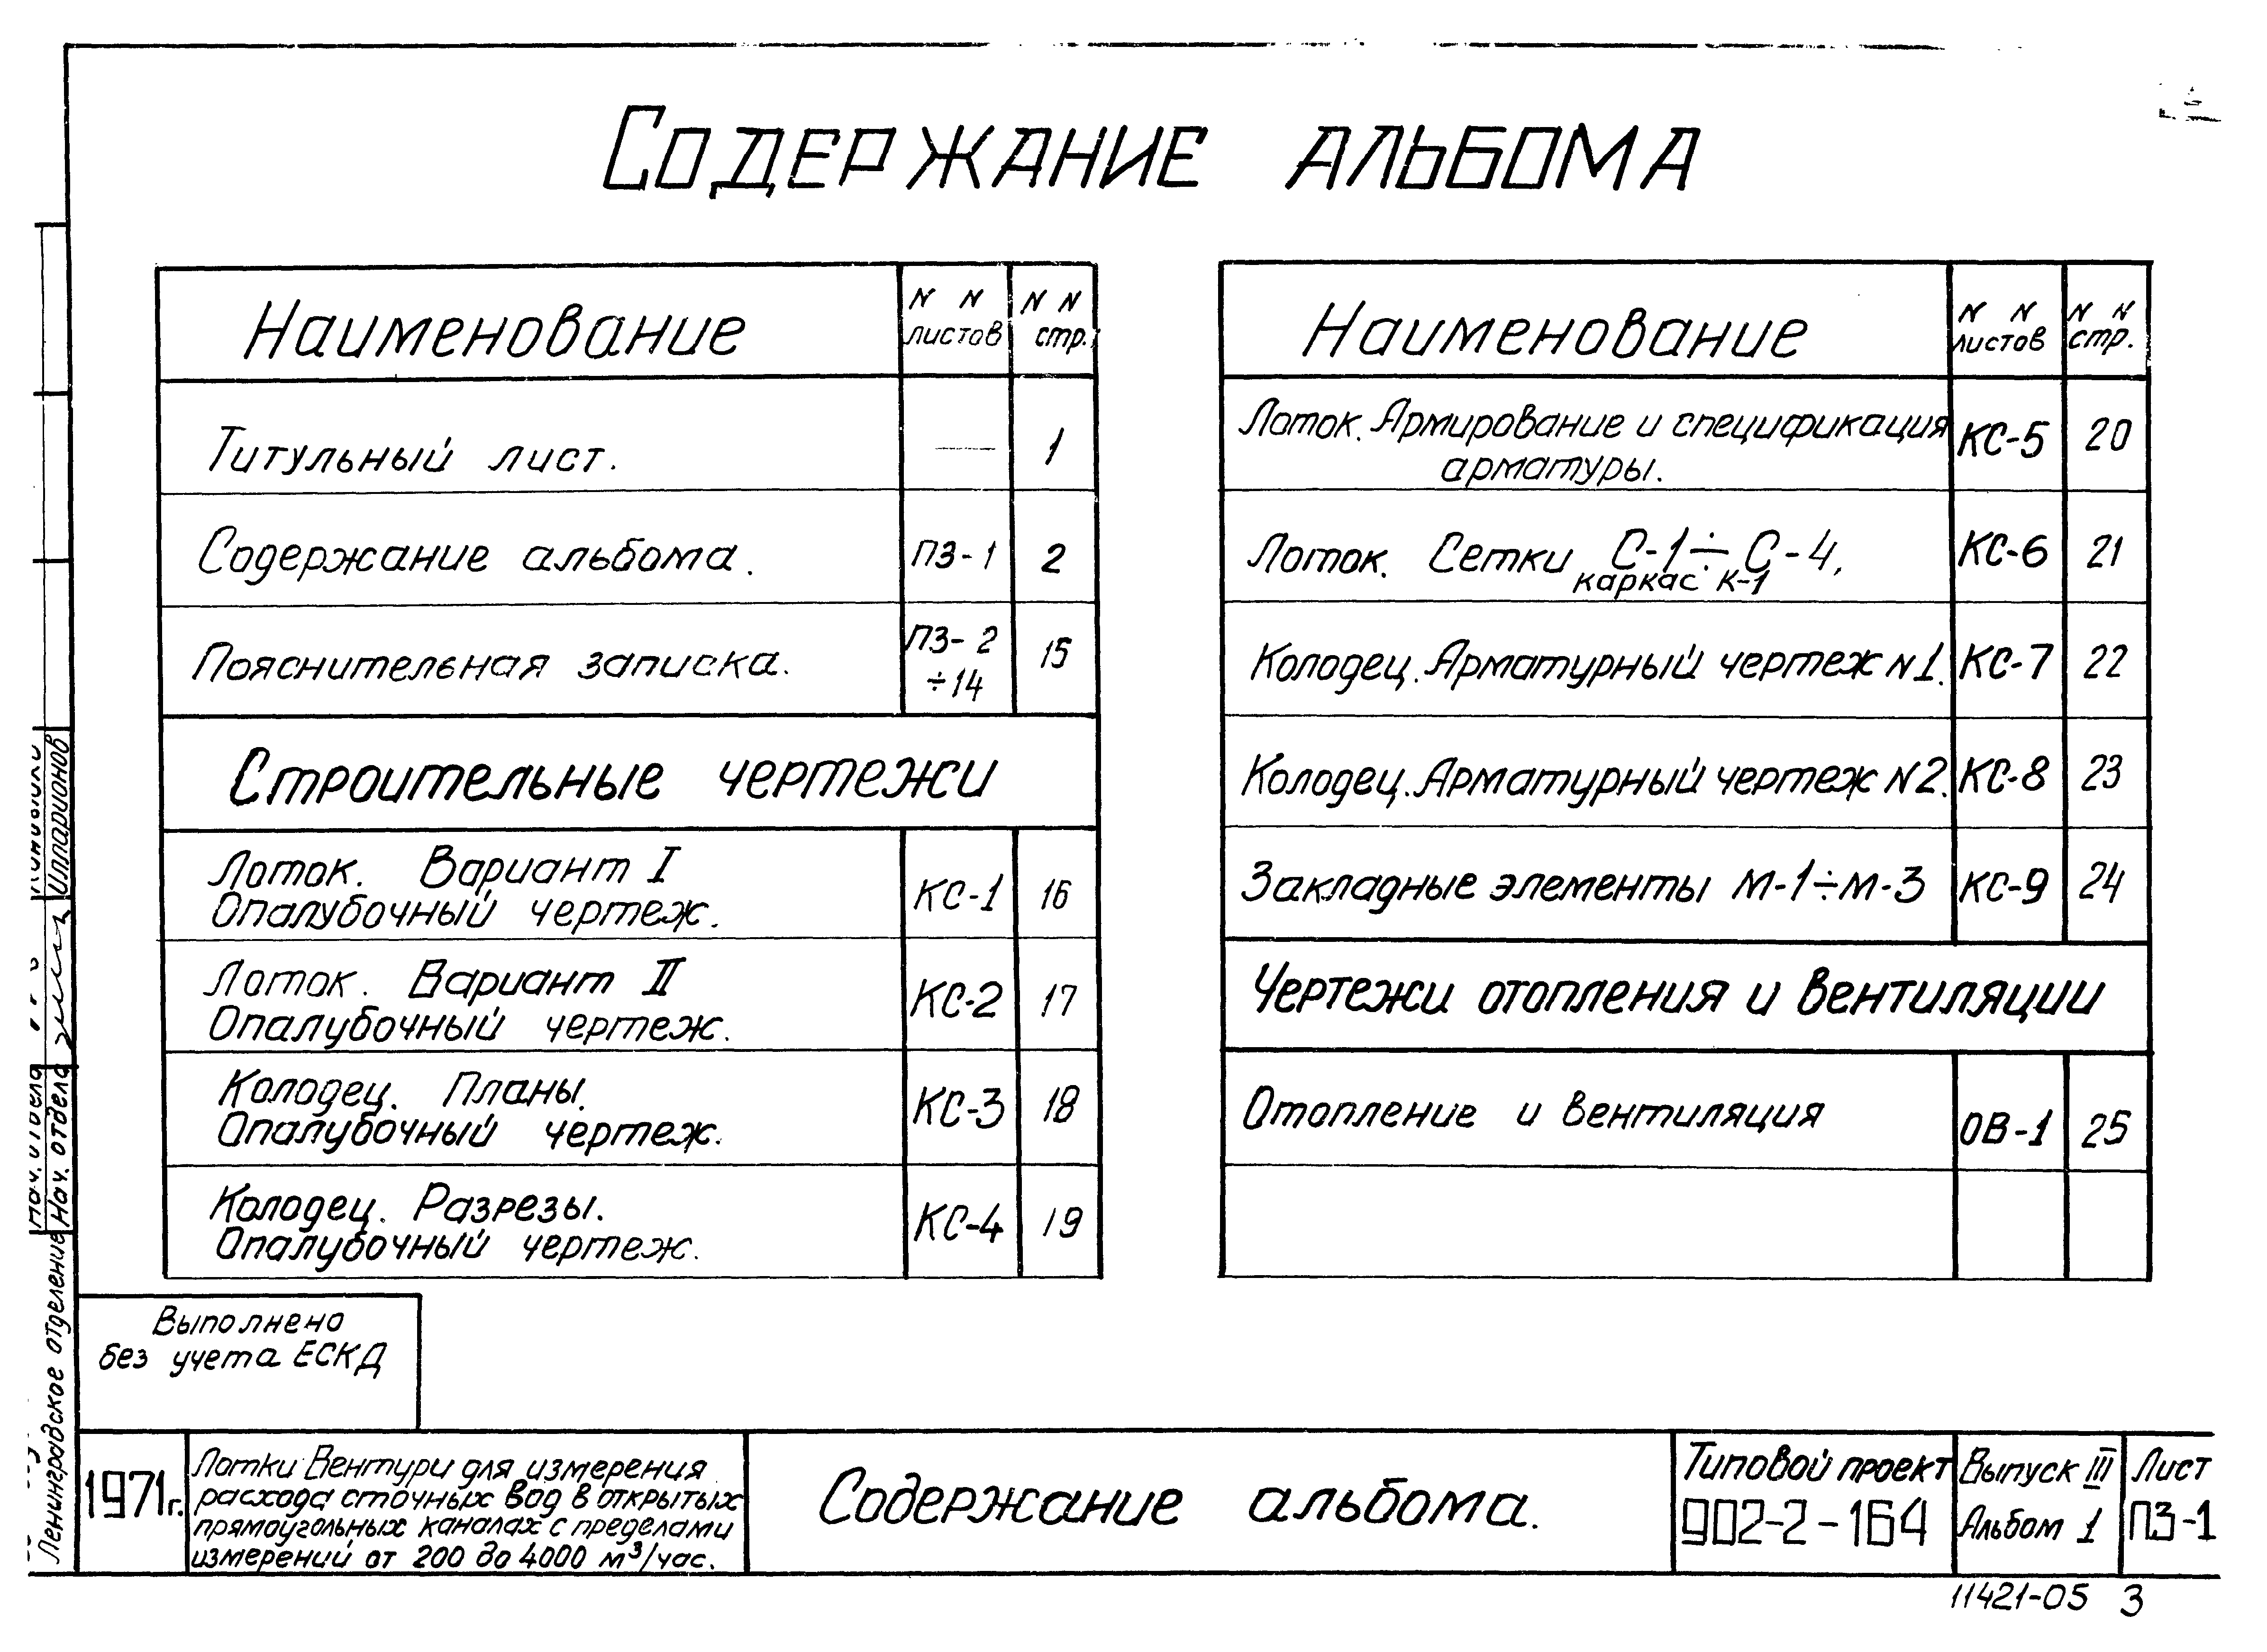 Содержание альбома
Наименование
N N листов
N N стр.
Титульный лист.
—
1
Содержание альбома.
ПЗ-1
2
Пояснительная записка.
ПЗ-2
÷14
15
Строительные чертежи
Лоток. Вариант I
Опалубочный чертеж.
КС-1
16
Лоток. Вариант II
Опалубочный чертеж.
КС-2
17
Колодец. Планы.
Опалубочный чертеж.
КС-3
18
Колодец. Разрезы.
Опалубочный чертеж.
КС-4
19
Наименование
N N листов
N N стр.
Лоток. Армирование и спецификация
арматуры.
КС-5
20
Лоток. Сетки С-1÷С-4,
каркас К-1
КС-6
21
Колодец. Арматурный чертеж N1.
КС-7
22
Колодец. Арматурный чертеж N2.
КС-8
23
Закладные элементы М-1÷М-3
КС-9
24
Чертежи отопления и вентиляции
Отопление и вентиляция
ОВ-1
25
Выполнено
без учета ЕСКД
1971г.
Лотки Вентури для измерения
расхода сточных вод в открытых
прямоугольных каналах с пределами
измерений от 200 до 4000 м³/час.
Содержание альбома.
Типовой проект
902-2-164
Выпуск III
Альбом 1
Лист
ПЗ-1
11421-05 3
Ленинградское отделение
Нач. отдела
Нач. отдела
Илларионов